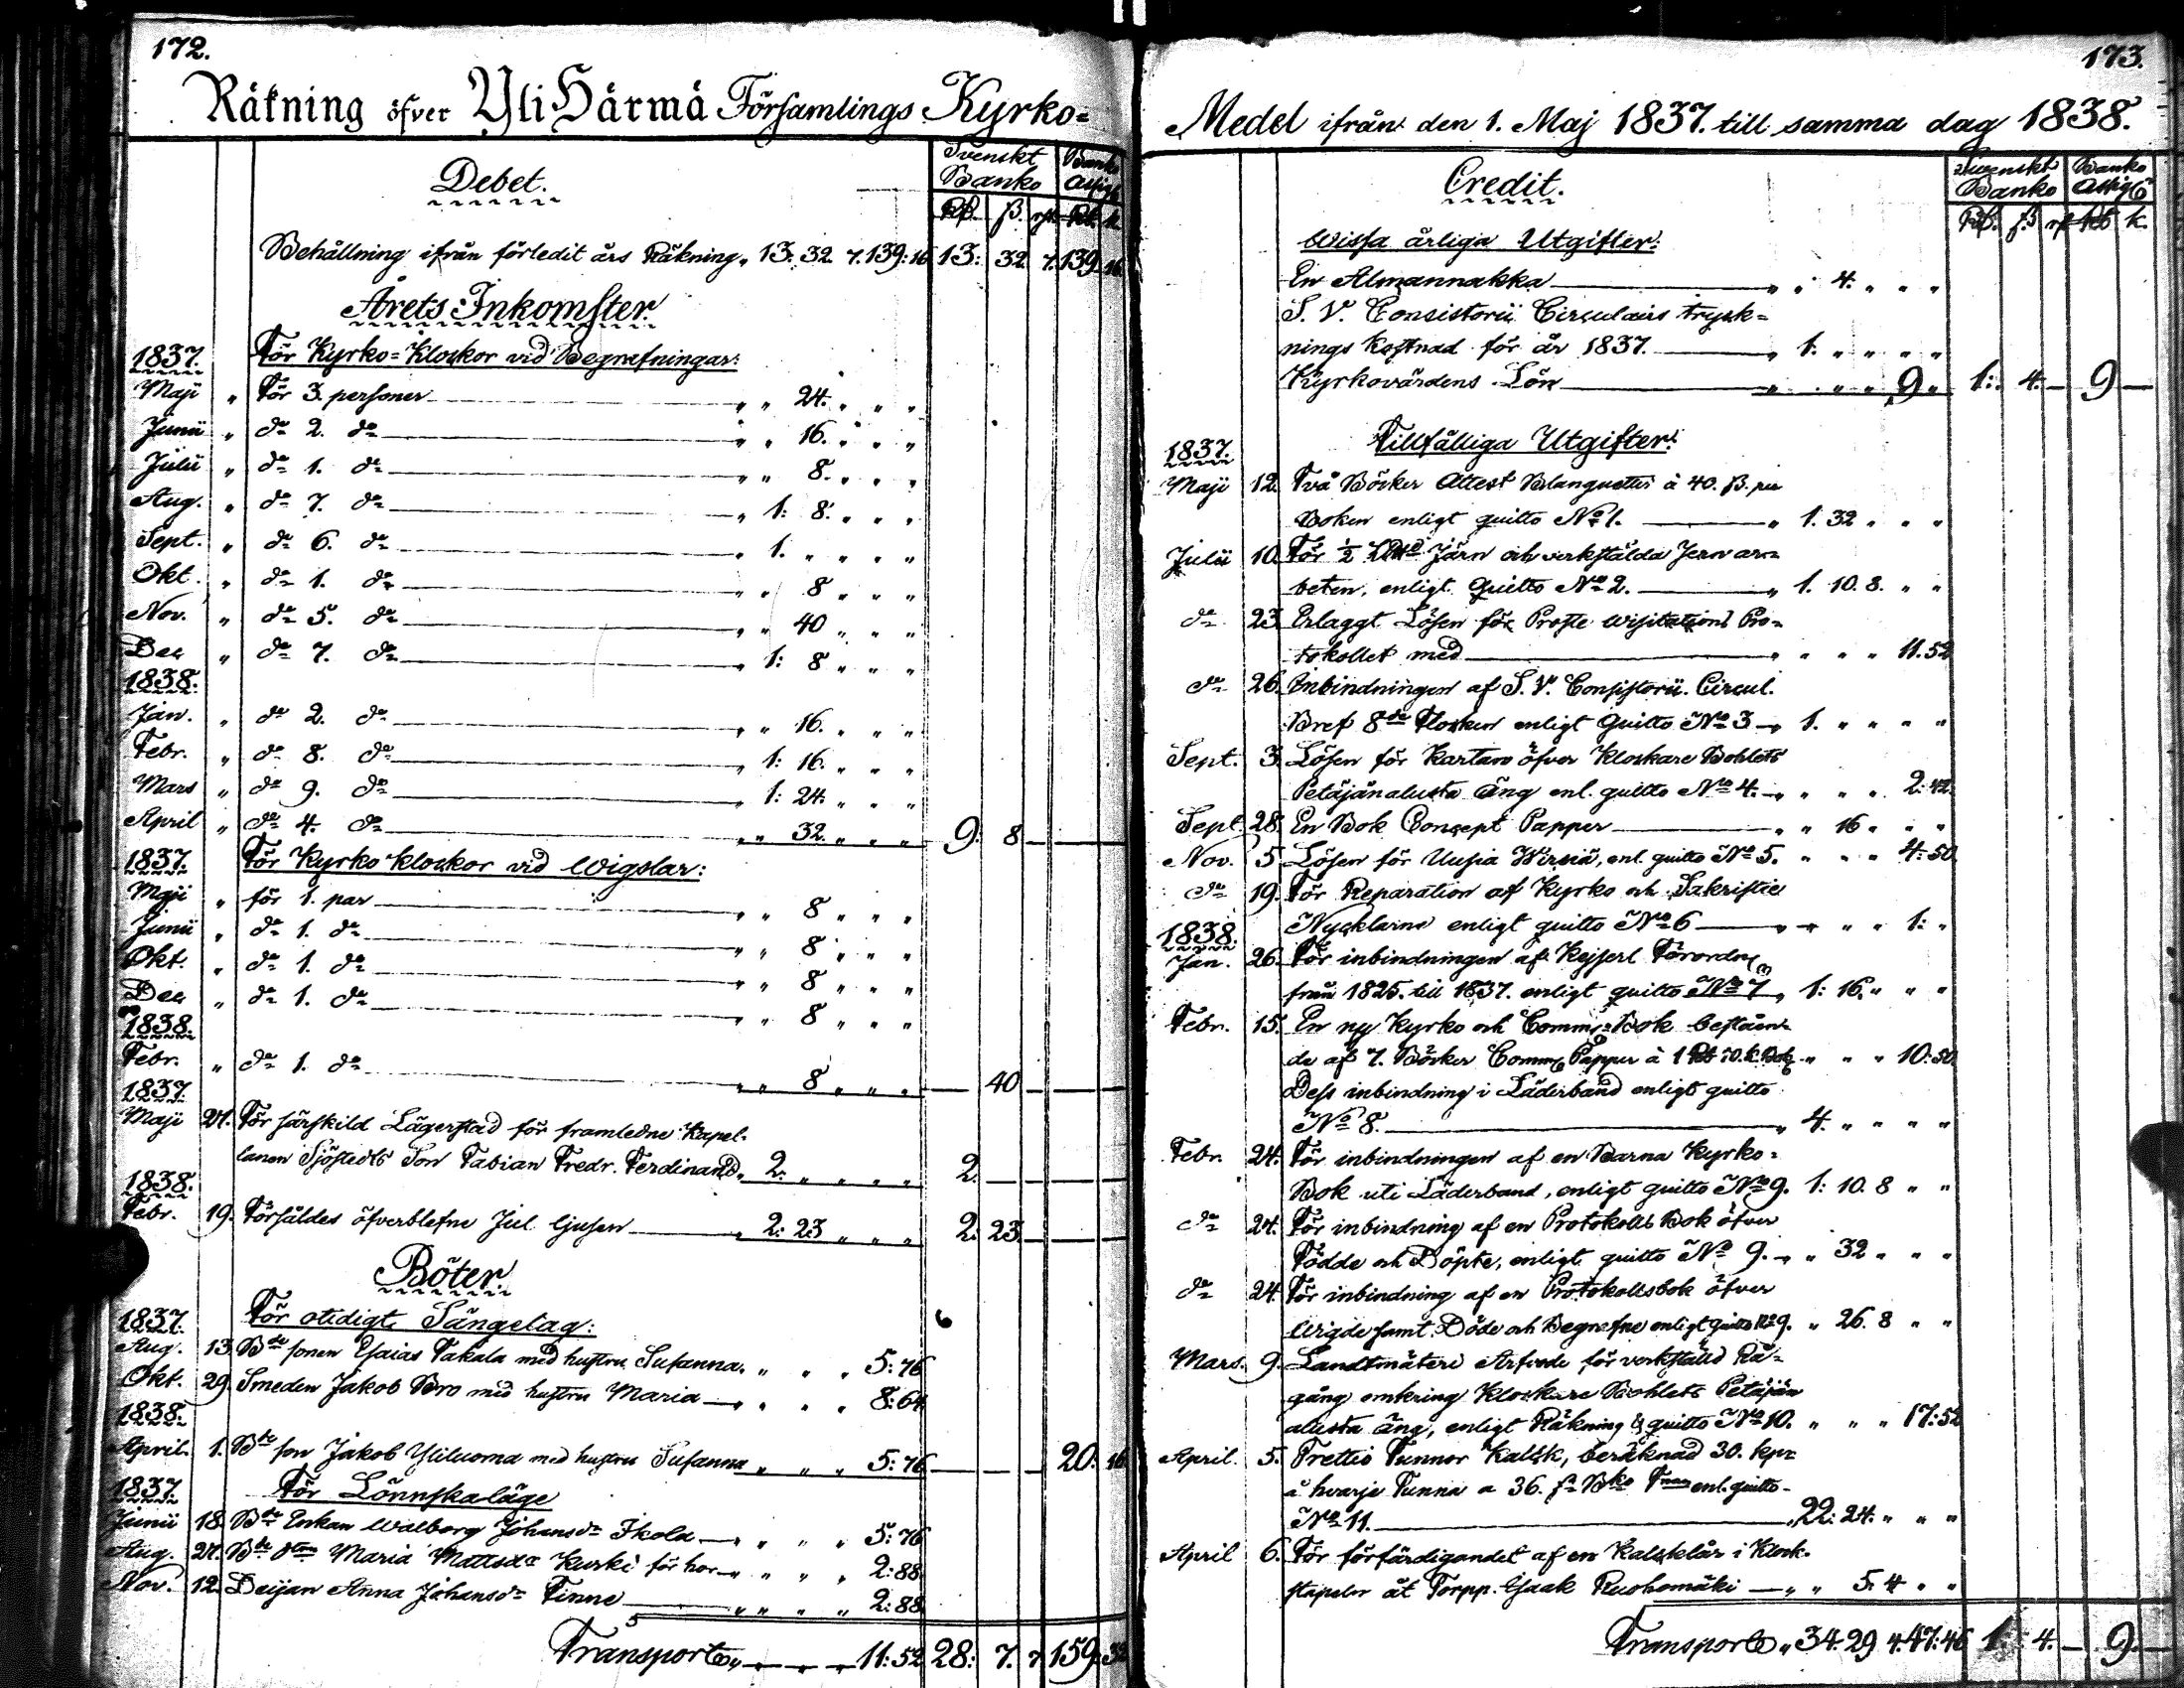 172.
Räkning öfver Yli Härmä Församlings Kyrko=
Debet.
Svenskt Banko
Banko Assig
Rß. ß. rst. Rb. k.
Behållning ifrån förledit års Räkning „ 13: 32. 7. 139: 16 13: 32. 7. 139. 16.
Årets Inkomster.
1837. För Kyrko=Klockor vid Begrafningar:
Maji „ För 3. personer „ „ 24. „ „ „
Junii „ do 2. do „ „ 16. „ „ „
Julii „ do 1. do „ „ 8. „ „ „
Aug. „ do 7. do „ 1: 8. „ „ „
Sept. „ do 6. do „ 1. „ „ „ „
Okt. „ do 1. do „ „ 8 „ „ „
Nov. „ do 5. do „ „ 40 „ „ „
Dec „ do 7. do „ 1: 8 „ „ „
1838.
Jan. „ do 2. do „ „ 16. „ „ „
Febr. „ do 8. do „ 1: 16. „ „ „
Mars „ do 9. do „ 1: 24. „ „ „
April „ do 4. do „ „ 32. „ „ „ 9: 8 — — —
1837. För Kyrko klockor vid Wigslar:
Maji „ för 1. par „ „ 8 „ „ „
Junii „ do 1. do „ „ 8 „ „ „
Okt. „ do 1. do „ „ 8 „ „ „
Dec „ do 1. do „ „ 8 „ „ „
1838.
Febr. „ do 1. do „ „ 8 „ „ „ — 40 — — —
1837.
Maji 27. För särskild Lägerstad för framledne Kapel-
lanen Sjöstedts Son Fabian Fredr. Ferdinand „ 2. „ „ „ „ 2. — — — —
1838.
Febr. 19. Försåldes öfverblefne Jul ljusen „ 2: 23 „ „ „ 2. 23. — — —
Böter.
1837. För otidigt Sängelag:
Aug. 13. Bde sonen Esaias Takala med hustru Susanna. „ „ „ 5: 76
Okt. 29. Smeden Jakob Bro med hustru Maria „ „ „ „ 8: 64
1838.
April. 1. Bde son Jakob Ylituoma med hustru Susanna „ „ „ „ 5: 76 — — — 20: 16
1837. För Lönnskaläge
Junii 18. Bde Enkan Walborg Johansdr Ikola „ „ „ „ 5: 76
Aug. 27. Bde dtern Maria Mattsdr Kurki för hor „ „ „ „ 2: 88
Nov. 12. Deijan Anna Johansdr Finne „ „ „ „ 2: 88
Transport „ „ „ „ 11: 52 28: 7. 7 159: 32
173.
Medel ifrån den 1. Maj 1837. till samma dag 1838.
Credit.
Svenskt Banko
Banko Assig
Rß. ß rst Rb k.
Wissa årliga Utgifter:
En Almannakka „ „ 4. „ „ „
S. V. Consistorii Circulairs tryck=
nings Kostnad för år 1837. „ 1. „ „ „ „
Kyrkovärdens Lön „ „ „ „ 9 „ 1: 4. — 9 —
1837. Tillfälliga Utgifter:
Maji 12. Två Böcker Attest Blanquetter à 40. ß. per
Boken enligt quitto No 1. „ 1. 32 „ „ „
Julii 10. För ½ Järn och verkstälda Jern ar=
beten, enligt quitto No 2. „ 1. 10. 8. „ „
do 23. Erlaggt Lösen för Proste Wisitations Pro=
tokollet med „ „ „ „ 11. 52
do 26. Inbindningen af S. V. Consistorii Circul.
Bref 8de Flocken enligt Quitto No 3 „ 1. „ „ „ „
Sept. 3. Lösen för Kartan öfver Klockare Bohlets
Petäjänalusta äng enl. quitto No 4. „ „ „ „ 2: 42.
Sept. 28. En Bok Concept Papper „ „ 16 „ „ „
Nov. 5. Lösen för Uusia Wirsiä, enl. quitto No 5. „ „ „ 4: 50
do 19. För Reparation af Kyrko och Sakristie
Nycklarne enligt quitto No 6 „ „ „ „ 1: „
1838.
Jan. 26. För inbindningen af Kejserl Förordn
från 1825. till 1837. enligt quitto No 7 „ 1: 16. „ „ „
Febr. 15. En ny Kyrko och Comm Bok beståen=
de af 7. Böcker Comm Papper à 1 Rb 50. k. Bok „ „ „ 10: 50.
Dess inbindning i Läderband enligt quitto
No 8. „ 4. „ „ „ „
Febr. 24. För inbindningen af en Barna Kyrko=
Bok uti Läderband, enligt quitto No 9. 1: 10. 8 „ „
do 24. För inbindning af en Protokolls Bok öfver
Födde och Döpte, enligt quitto No 9. „ „ 32 „ „ „
do 24. För inbindning af en Protokollsbok öfver
Wigde samt Döde och Begrafne enligt quitto No 9. „ 26. 8 „ „
Mars. 9. Landtmäteri Arfvode för verkställd Rå=
gång omkring Klockare Bohlets Petäjän
alusta äng, enligt Räkning & quitto No 10. „ „ „ 17: 52
April. 5. Trettio Tunnor Kalk, beräknad 30. kpr
à hvarje Tunna a 36. ß Bko Tnan enl. quitto
No 11. „ 22: 24. „ „ „
April 6. För förfärdigandet af en Kalklår i Klock-
stapeln åt Torpp. Isaak Ruohomäki „ „ 5. 4 „ „
Transport „ 34. 29 4. 47: 46 1: 4. — 9. —